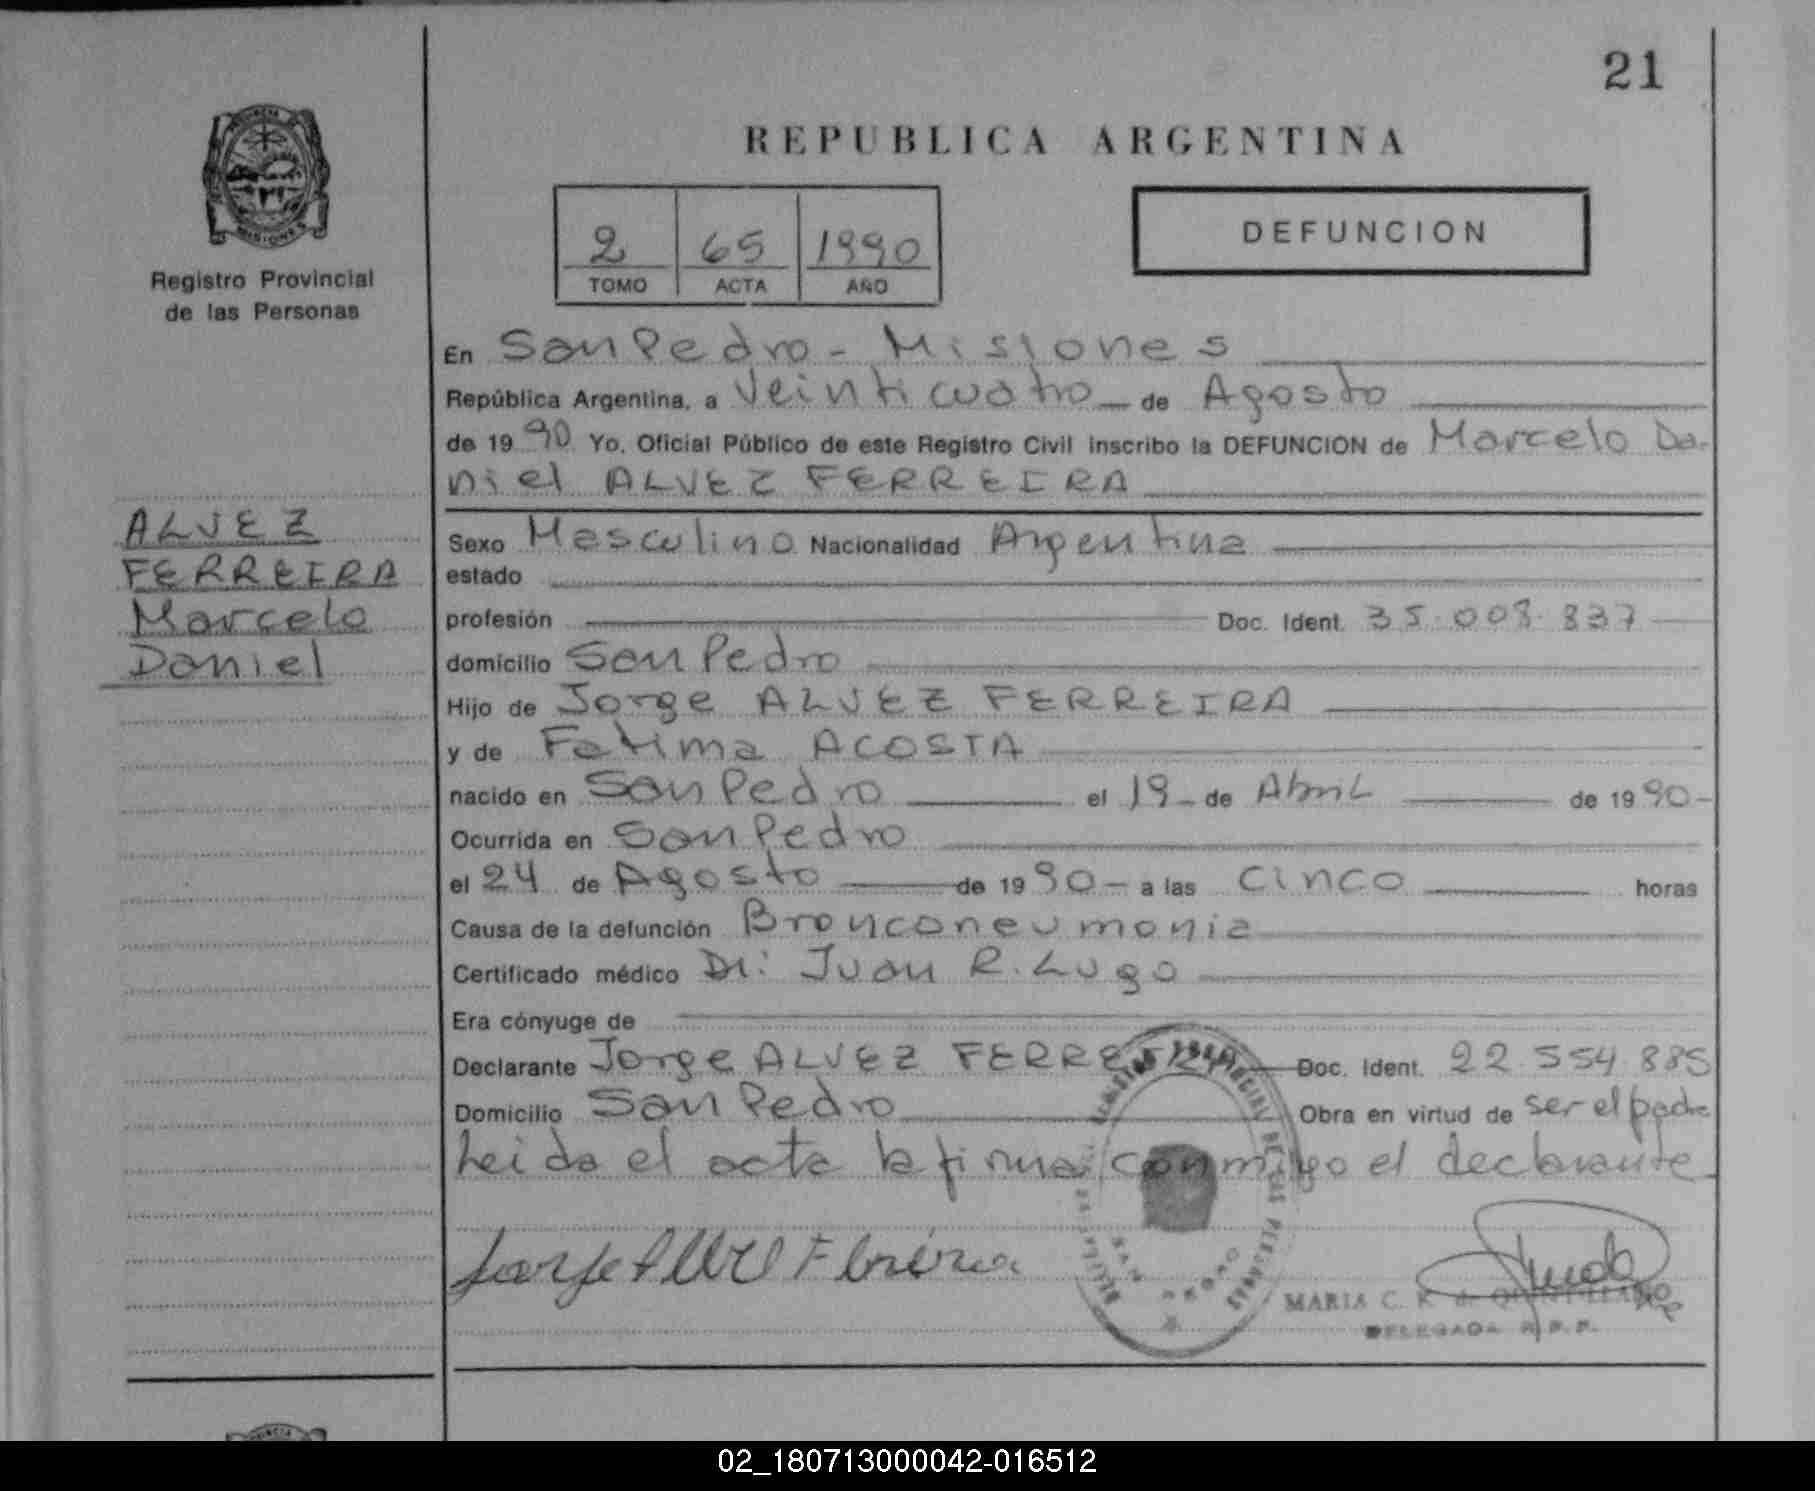 21
REPUBLICA ARGENTINA
PROVINCIA DE MISIONES
2 65 1990
TOMO ACTA AÑO
DEFUNCION
Registro Provincial
de las Personas
En San Pedro - Misiones
República Argentina, a Veinticuatro de Agosto
de 1990 Yo, Oficial Público de este Registro Civil inscribo la DEFUNCION de Marcelo Da-
niel ALVEZ FERREIRA
ALVEZ
FERREIRA
Marcelo
Daniel
Sexo Masculino Nacionalidad Argentina
estado
profesión Doc. Ident. 35.008.837
domicilio San Pedro
Hijo de Jorge ALVEZ FERREIRA
y de Fatima ACOSTA
nacido en San Pedro el 19 - de Abril de 1990 -
Ocurrida en San Pedro
el 24 de Agosto de 1990 - a las cinco horas
Causa de la defunción Bronconeumonia
Certificado médico Dr: Juan R. Lugo
Era cónyuge de
Declarante Jorge ALVEZ FERREIRA Doc. Ident. 22.554.885
Domicilio San Pedro Obra en virtud de ser el padre
Leida el acta la firma conmigo el declarante
Jorge
MARIA C. R. de
DELEGADA R.P.P.
02_180713000042-016512